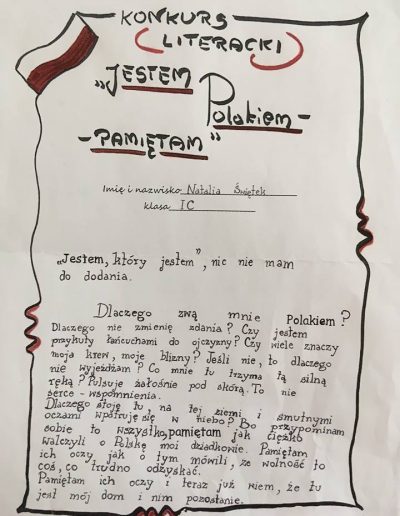 KONKURS
LITERACKI
„JESTEM
Polakiem –
– PAMIĘTAM"
Imię i nazwisko: Natalia Świętek
klasa IC
„Jestem, który jestem", nic nie mam
do dodania.
Dlaczego zwą mnie Polakiem?
Dlaczego nie zmienię zdania? Czy jestem
przykuty łańcuchami do ojczyzny? Czy wiele znaczy
moja krew, moje blizny? Jeśli nie, to dlaczego
nie wyjeżdżam? Co mnie tu trzyma tą silną
ręką? Pulsuje żałośnie pod skórą. To nie
serce - wspomnienia.
Dlaczego stoję tu, na tej ziemi i smutnymi
oczami wpatruję się w niebo? Bo przypominam
sobie to wszystko, pamiętam jak ciężko
walczyli o Polskę moi dziadkowie. Pamiętam
ich oczy jak o tym mówili, ze wolność to
coś, co trudno odzyskać.
Pamiętam ich oczy i teraz już wiem, że tu
jest mój dom i nim pozostanie.